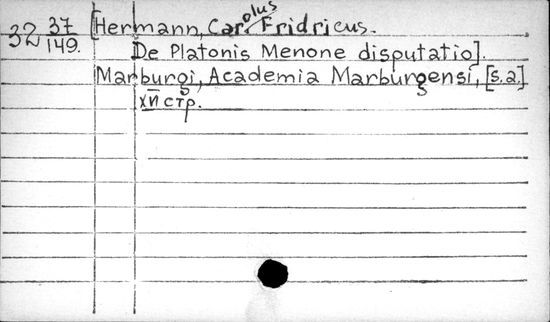 32 37/149. [Hermann, Carolus Fridricus.
De Platonis Menone disputatio].
Marburgi, Academia Marburgensi, [s.a.]
XII стр.